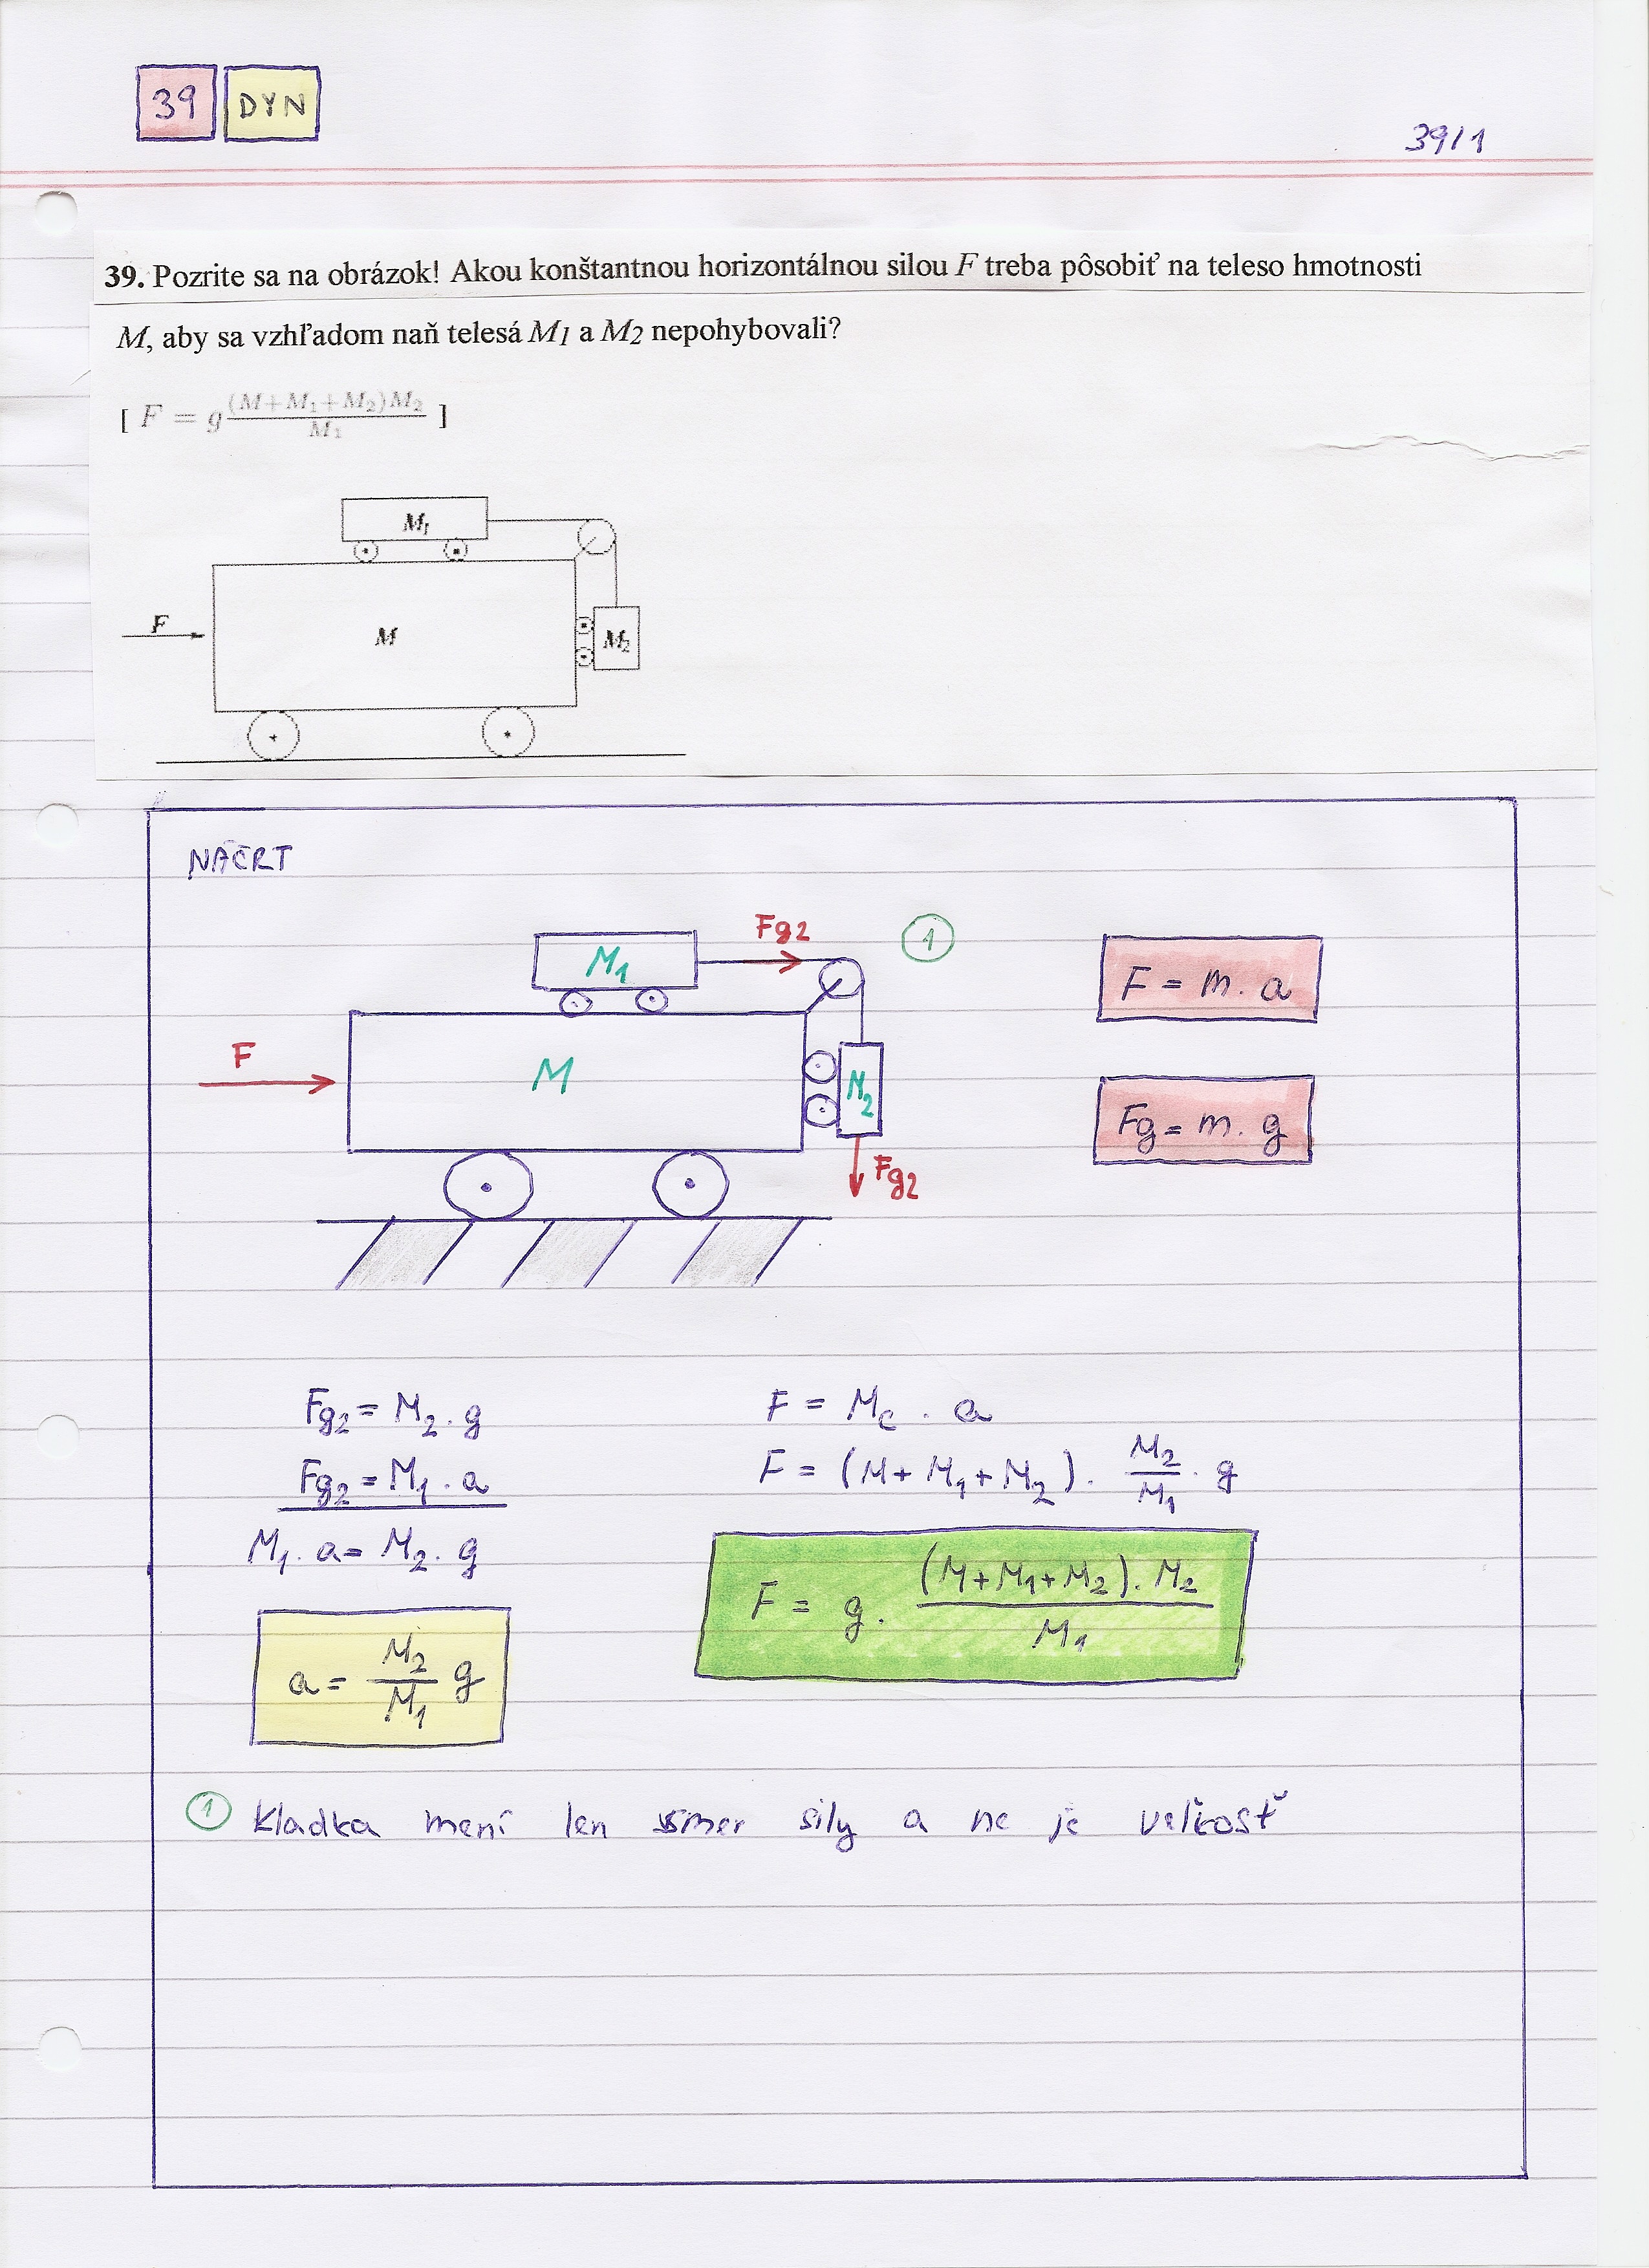 39 DYN
39/1
39. Pozrite sa na obrázok! Akou konštantnou horizontálnou silou F treba pôsobiť na teleso hmotnosti
M, aby sa vzhľadom naň telesá M1 a M2 nepohybovali?
[ F = g (M+M₁+M₂)M₂ / M₁ ]
M₁
F
M
M₂
NÁČRT
Fg2
1
M₁
F = m. a
F
M
M₂
Fg = m. g
Fg2
Fg2 = M₂. g
F = Mc . a
Fg2 = M₁ . a
F = (M+ M₁+M₂) . M₂/M₁ . g
M₁. a = M₂. g
F = g. (M+M₁+M₂). M₂ / M₁
a = M₂/M₁ g
1 Kladka mení len smer sily a ne je veľkosť